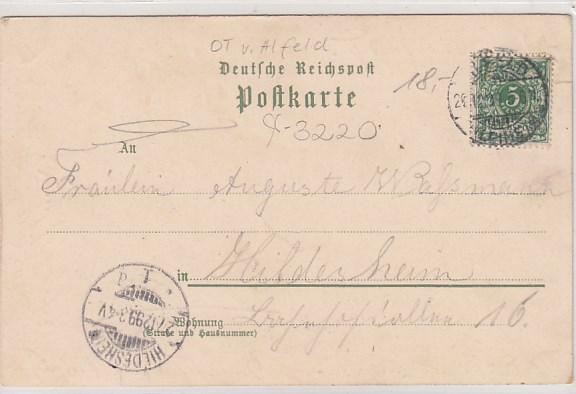 OT v. Alfeld
Deutsche Reichspost
Postkarte
18,-
X-3220
5
An
Fräulein Auguste Waßmann
in Hildesheim
Wohnung
(Straße und Hausnummer)
16.
HILDESHEIM